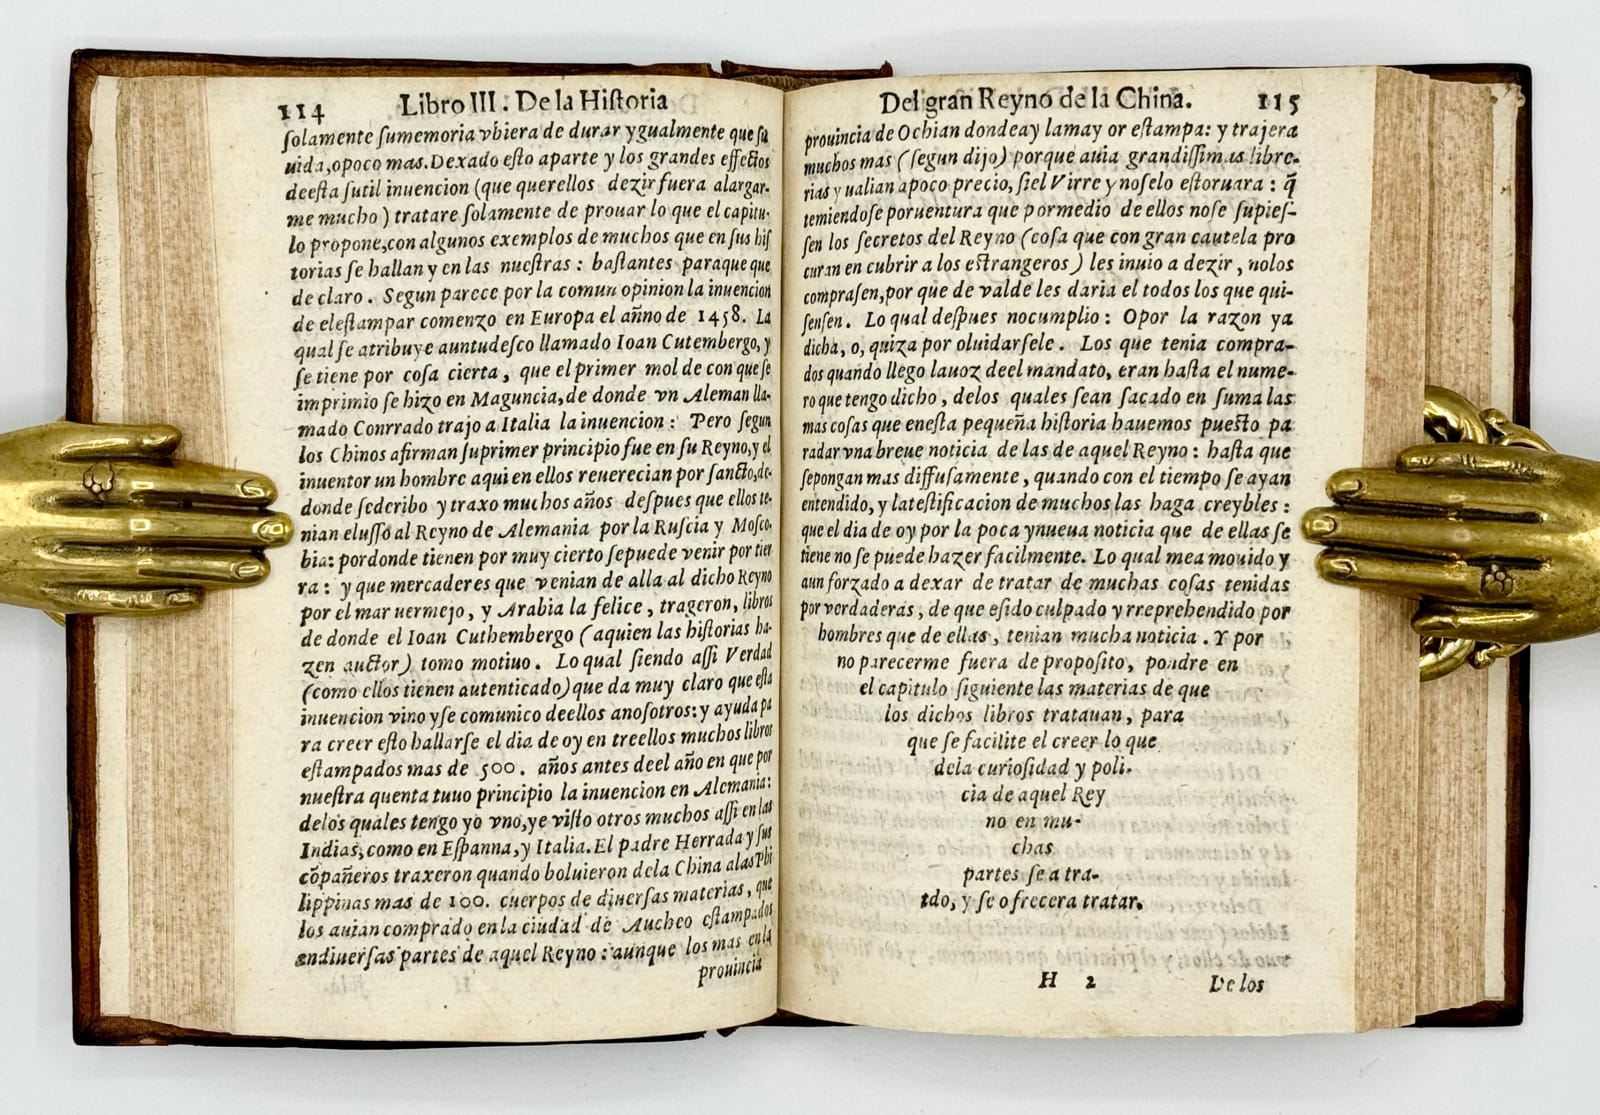 114 Libro III. De la Hiſtoria
ſolamente ſumemoria vbiera de durar ygualmente que ſu
uida,opoco mas.Dexado eſto aparte y los grandes effectos
deeſta ſutil inuencion (que querellos dezir fuera alargar-
me mucho) tratare ſolamente de prouar lo que el capitu-
lo propone,con algunos exemplos de muchos que en ſus hiſ
torias ſe hallan y en las nueſtras : baſtantes paraque que
de claro. Segun parece por la comun opinion la inuencion
de eleſtampar comenzo en Europa el añno de 1458. La
qual ſe atribuye auntudeſco llamado Ioan Cutembergo, y
ſe tiene por coſa cierta, que el primer mol de con que ſe
imprimio ſe hizo en Maguncia,de donde vn Aleman lla-
mado Conrrado trajo a Italia la inuencion : Pero ſegun
los Chinos afirman ſuprimer principio fue en ſu Reyno,y el
inuentor un hombre aqui en ellos reuerecian por ſancto,de-
donde ſederibo y traxo muchos años deſpues que ellos te-
nian eluſſo al Reyno de Alemania por la Ruſcia y Moſco-
bia: pordonde tienen por muy cierto ſepuede venir por tier
ra : y que mercaderes que venian de alla al dicho Reyno
por el mar uermejo, y Arabia la felice, trageron, libros
de donde el Ioan Cuthembergo (aquien las hiſtorias ha-
zen auctor) tomo motiuo. Lo qual ſiendo aſſi Verdad
(como ellos tienen autenticado) que da muy claro que eſta
inuencion vino yſe comunico deellos anoſotros: y ayuda pa
ra creer eſto hallarſe el dia de oy en treellos muchos libros
eſtampados mas de 500. años antes deel año en que por
nueſtra quenta tuuo principio la inuencion en Alemania:
delos quales tengo yo vno,ye viſto otros muchos aſſi en las
Indias,como en Eſpanna,y Italia. El padre Herrada y ſus
cōpañeros traxeron quando boluieron dela China alas Phi
lippinas mas de 100. cuerpos de diuerſas materias, que
los auian comprado en la ciudad de Aucheo eſtampados
endiuerſas partes de aquel Reyno : aunque los mas en la
prouincia
Del gran Reyno de la China. 115
prouincia de Ochian dondeay lamay or eſtampa: y trajera
muchos mas (ſegun dijo) porque auia grandiſſimas libre-
rias y ualian apoco precio, ſiel Virre y noſelo eſtoruara : q̃
temiendoſe poruentura que pormedio de ellos noſe ſupieſ-
ſen los ſecretos del Reyno (coſa que con gran cautela pro
curan en cubrir a los eſtrangeros) les inuio a dezir, nolos
compraſen,por que de valde les daria el todos los que qui-
ſenſen. Lo qual deſpues nocumplio : Opor la razon ya
dicha, o, quiza por oluidarſele. Los que tenia compra-
dos quando llego lauoz deel mandato, eran haſta el nume-
ro que tengo dicho, delos quales ſean ſacado en ſuma las
mas coſas que eneſta pequeña hiſtoria hauemos pueſto pa
radar vna breue noticia de las de aquel Reyno : haſta que
ſepongan mas diffuſamente, quando con el tiempo ſe ayan
entendido, y lateſtificacion de muchos las haga creybles :
que el dia de oy por la poca ynueua noticia que de ellas ſe
tiene no ſe puede hazer facilmente. Lo qual mea mouido y
aun forzado a dexar de tratar de muchas coſas tenidas
por verdaderas, de que eſido culpado y rreprehendido por
hombres que de ellas, tenian mucha noticia. Y por
no parecerme fuera de propoſito, pondre en
el capitulo ſiguiente las materias de que
los dichos libros tratauan, para
que ſe facilite el creer lo que
dela curioſidad y poli-
cia de aquel Rey
no en mu-
chas
partes ſe a tra-
tdo, y ſe ofrecera tratar.
H 2 De los